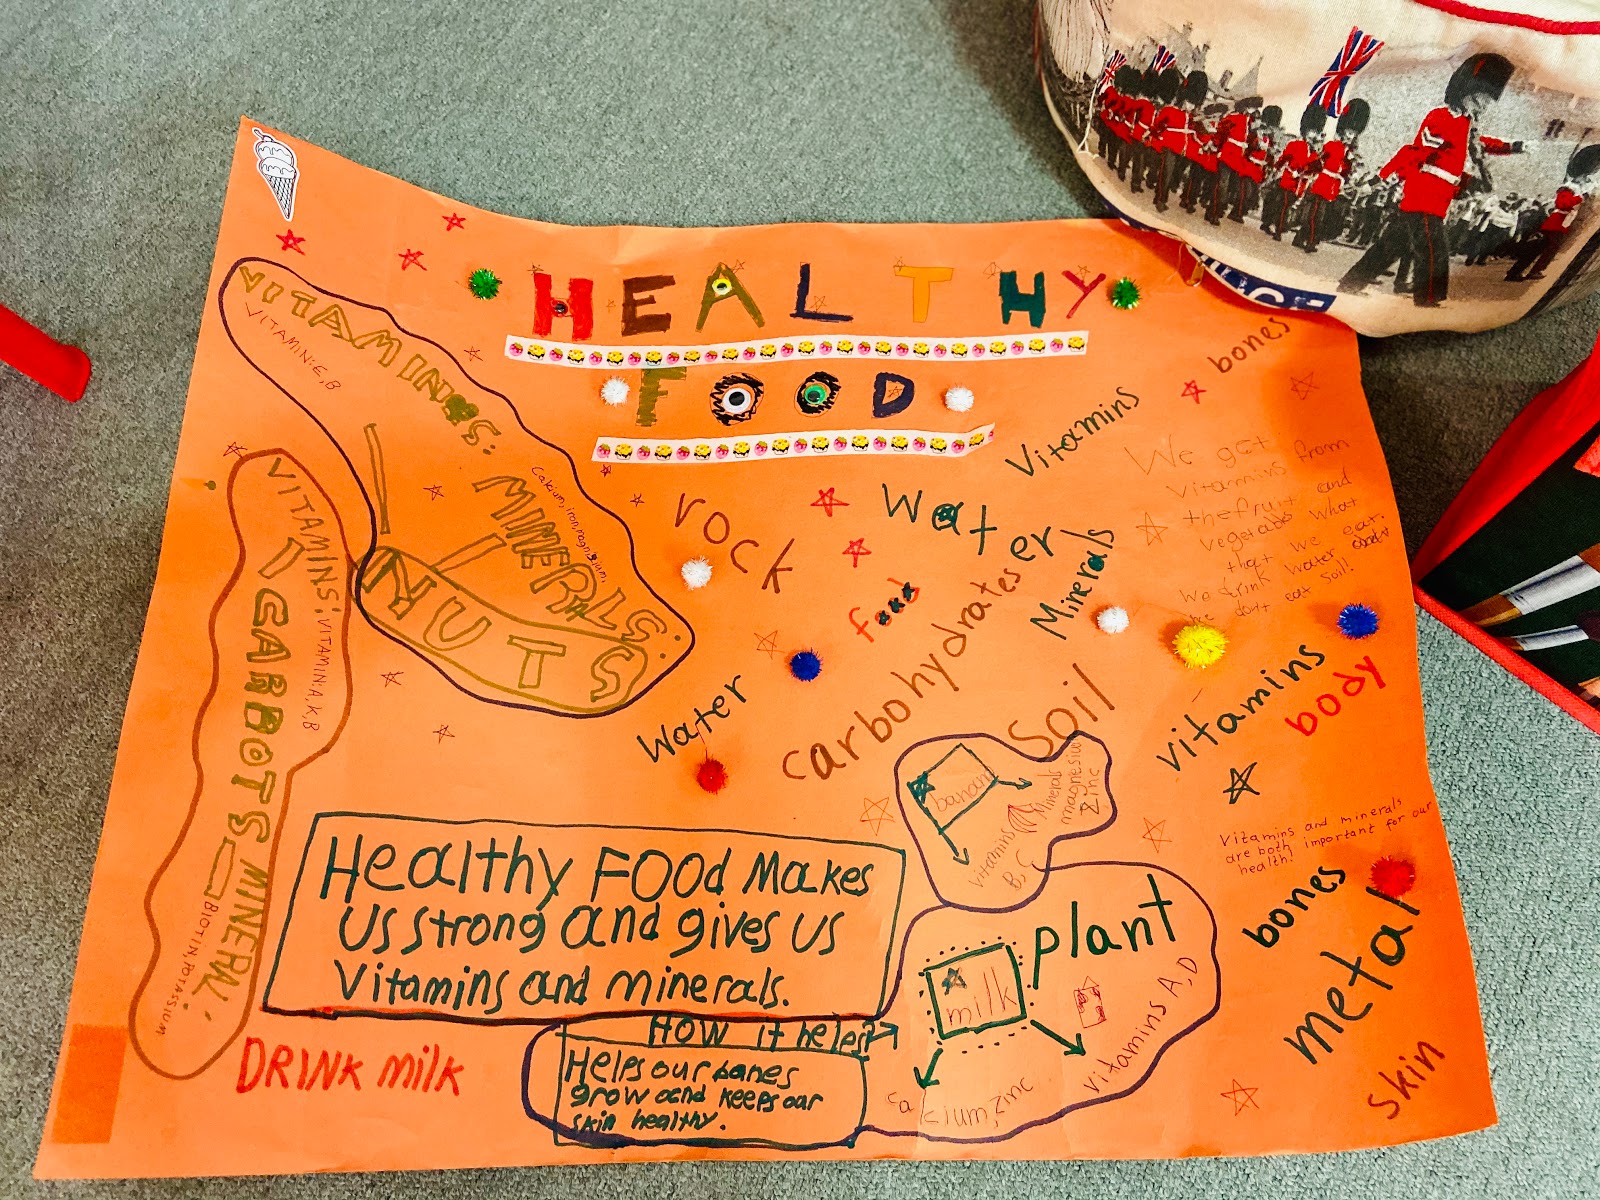 HEALTHY
FOOD
VITAMINS:
VITAMIN:E,B
MINERALS:
Calcium, iron, magnisium,
NUTS
VITAMINS:
VITAMIN:A,K,B
CARBOTS
MINERAL:
BIOTIN, POTASSIUM
bones
Vitamins
We get
vitamins from
the fruit and
vegetabls what
that we eat.
We drink water and
we don't eat
soil!
rock
Water
food
Minerals
carbohydrates
Water
soil
vitamins
body
banana
vitamins
B, C
Minerals
magnesium
zinc
Vitamins and minerals
are both important for our
health!
bones
metal
skin
Healthy FOOd Makes
us strong and gives us
vitamins and minerals.
plant
milk
vitamins A, D
calcium, zinc
HOW it helps?
Helps our banes
grow and keeps our
skin healthy.
DRINK milk